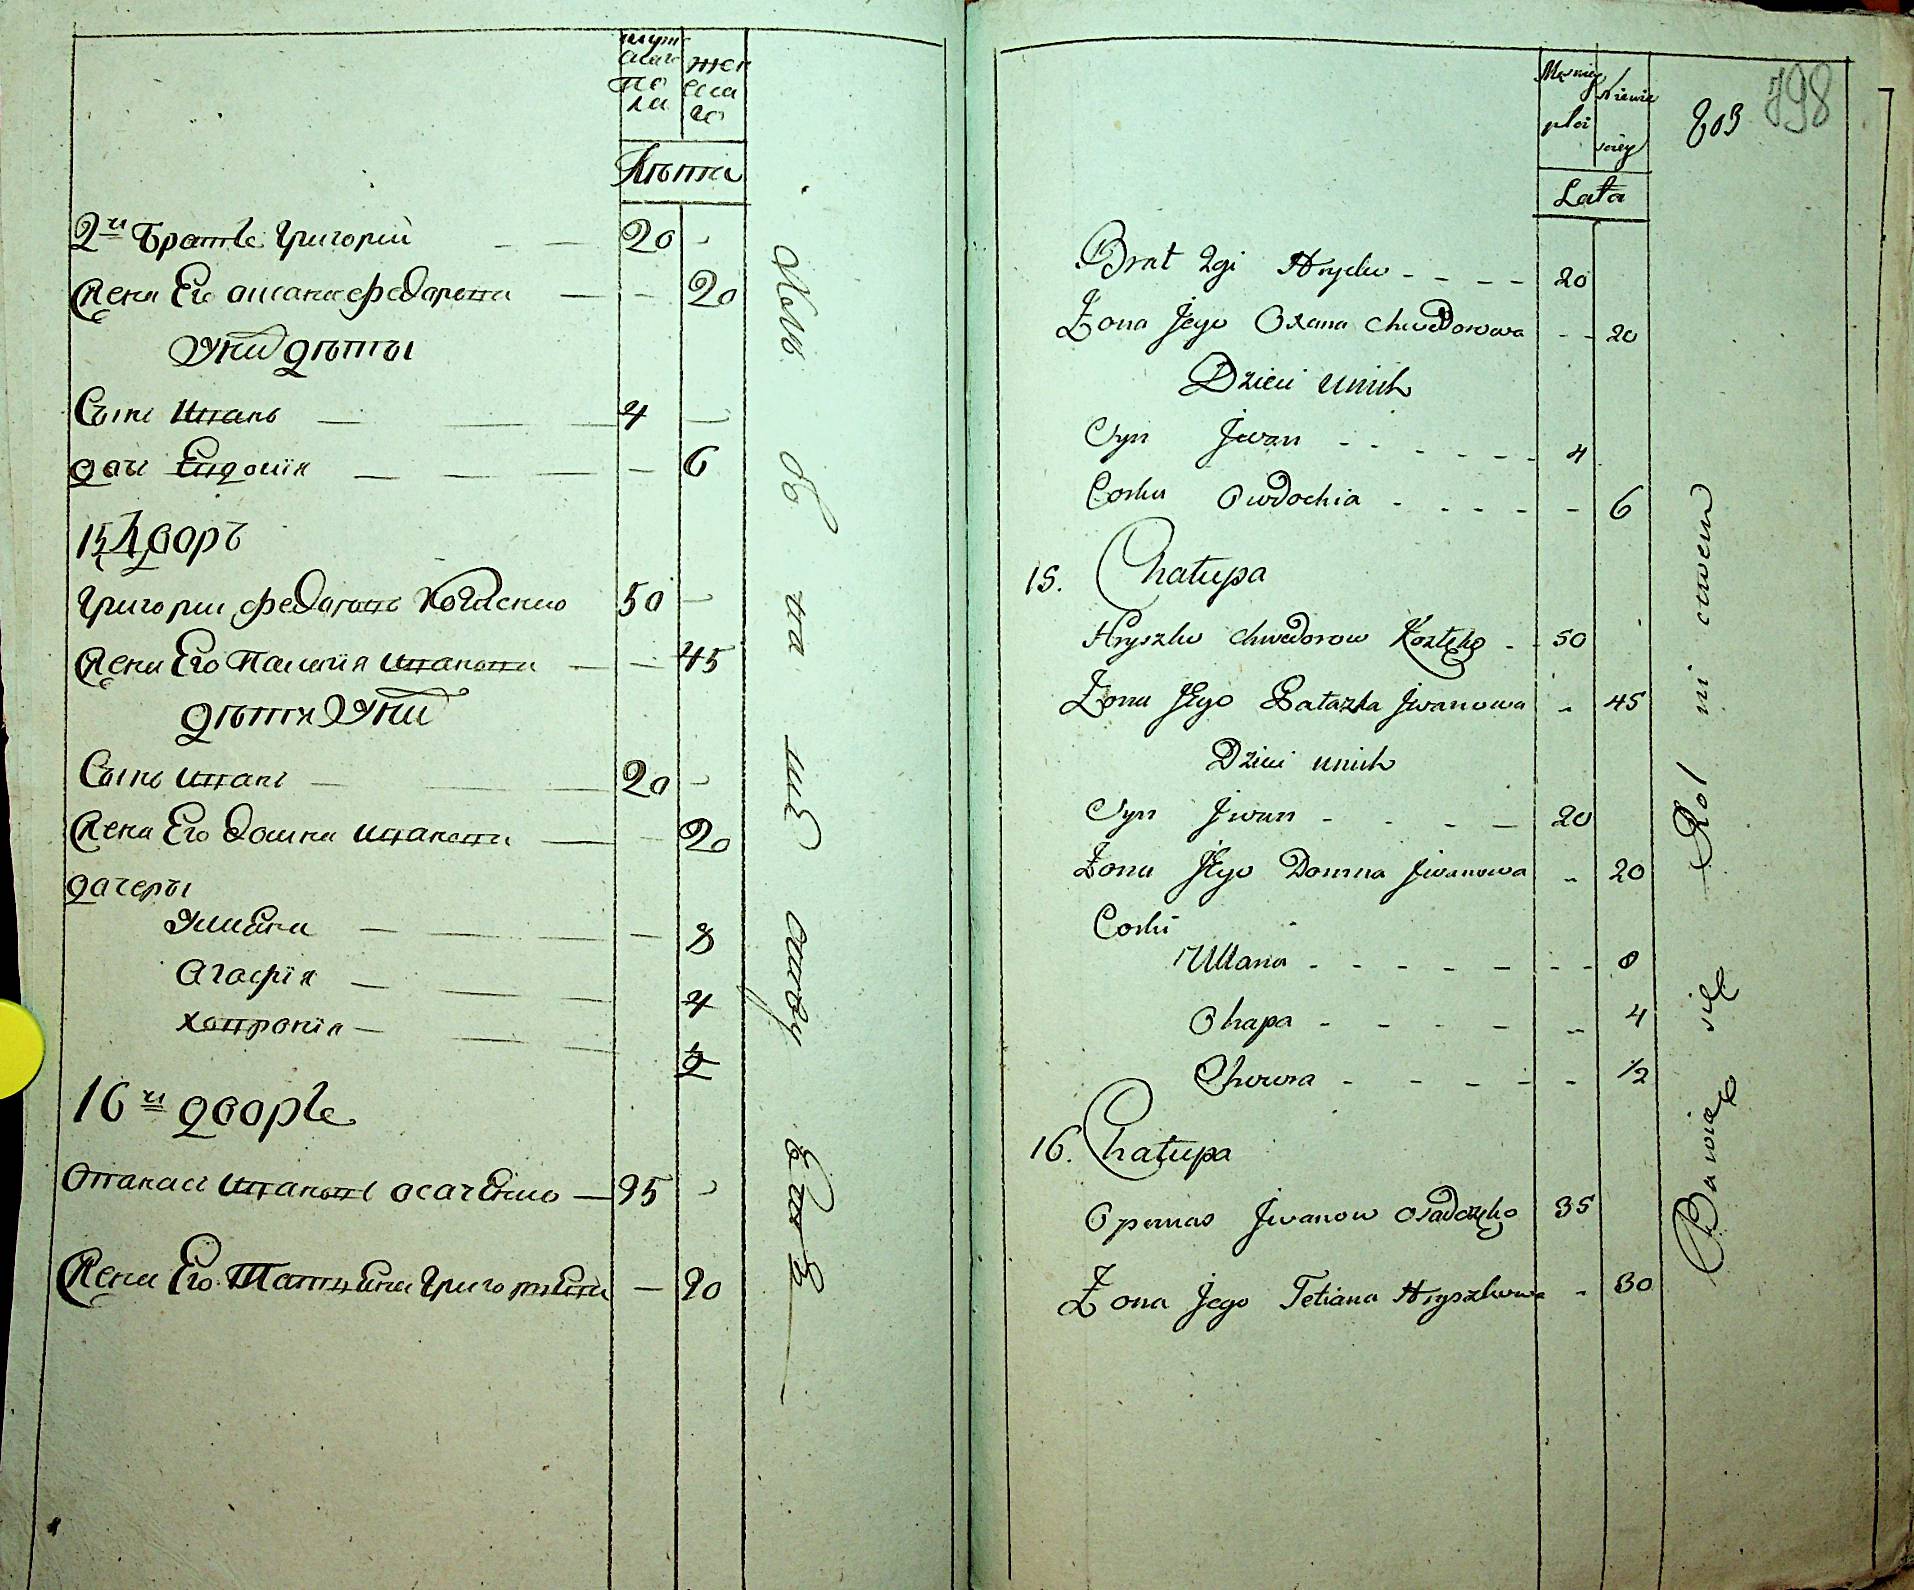 мужескаго пола
женскаго
Лѣта
2й Братъ Григорий — — 20 -
Жена Его Оксана Федорова — — 20
У Ни дѣти
Сынъ Иванъ — — 4 —
дочь Евдокия — — — 6
15 Дворъ
Григории Федоровъ 50 —
Жена Его Палагия Иванова — — 45
дѣти У Ни
Сынъ Иванъ — — 20 -
Жена Его Домна Иванова — — 20
дочеры
Улиана — — — 8
Агафия — — — 4
Хаврония — — —
16й дворъ
Опанасъ Ивановъ — 35 -
Жена Его Татиана Григориева — 30
803 798
Męzkiey płci
Niewieściey
Lata
Brat 2gi Hryćko - - - - 20
Żona Jego Oxana Chwedorowa - - 20
Dzieci unich
Syn Jwan - - - - - - 4
Corka Owdochia - - - - - - 6
15. Chałupa
Hryszko Chwedorow - - 50
Żona Jego Pałazka Jwanowa - 45
Dzieci unich
Syn Jwan - - - - 20
Żona Jego Domna Jwanowa - 20
Corki
Ullana - - - - - - - 8
Ohapa - - - - - 4
Chowra - - - - - - 1/2
16. Chałupa
Opanas Jwanow Osadczenko 35
Żona Jego Tetiana Hryszkowa - 30
Bawią się Rol ni ctwem